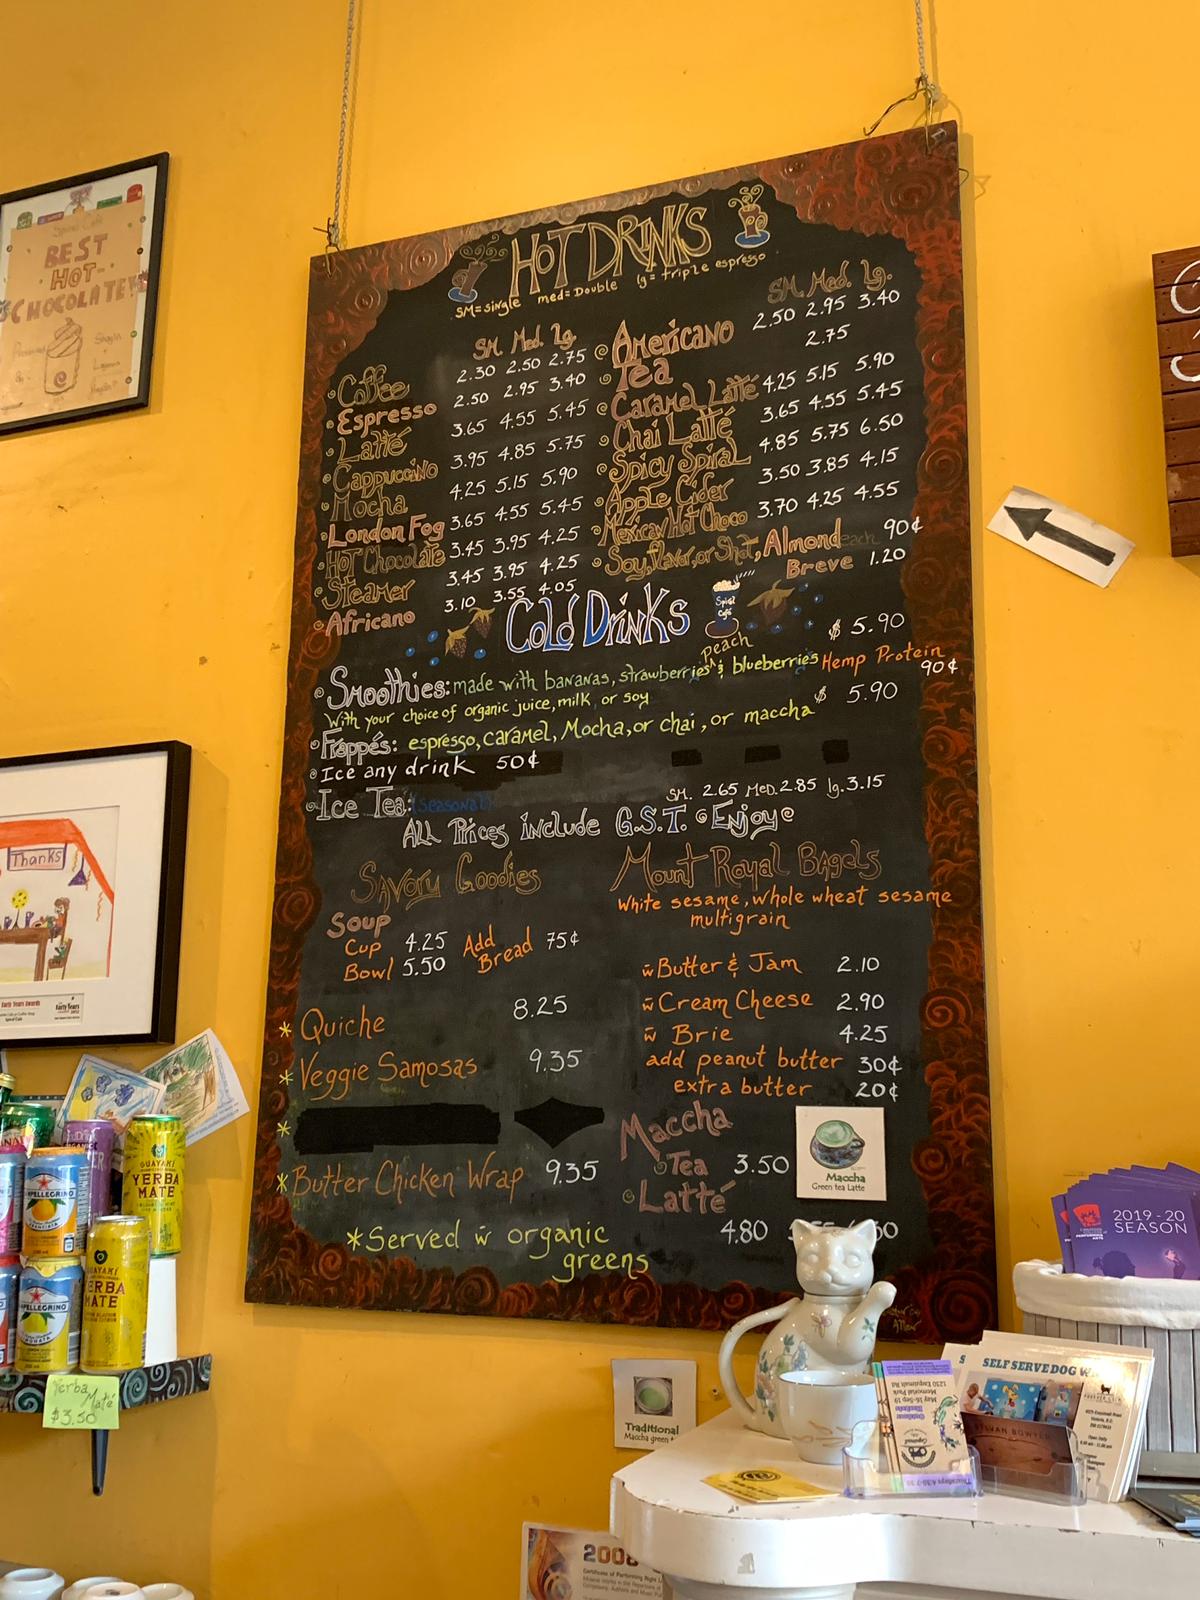 Spiral Café
BEST
HOT-
CHOCOLATE!
HOT DRINKS
SM=single med=Double lg=triple espresso
SM. Med. Lg.
Coffee 2.30 2.50 2.75
Espresso 2.50 2.95 3.40
Latté 3.65 4.55 5.45
Cappuccino 3.95 4.85 5.75
Mocha 4.25 5.15 5.90
London Fog 3.65 4.55 5.45
Hot Chocolate 3.45 3.95 4.25
Steamer 3.45 3.95 4.25
Africano 3.10 3.55 4.05
SM. Med. Lg.
Americano 2.50 2.95 3.40
Tea 2.75
Caramel Latté 4.25 5.15 5.90
Chai Latté 3.65 4.55 5.45
Spicy Spiral 4.85 5.75 6.50
Apple Cider 3.50 3.85 4.15
Mexican Hot Choco 3.70 4.25 4.55
Soy, flavor, or Shot, Almond each 90¢
Breve 1.20
Cold Drinks
Spiral Café
Smoothies: made with bananas, strawberries peach & blueberries $ 5.90
With your choice of organic juice, milk, or soy
Hemp Protein 90¢
Frappés: espresso, caramel, Mocha, or chai, or maccha $ 5.90
Ice any drink 50¢
Ice Tea: (seasonal) SM. 2.65 Med. 2.85 lg. 3.15
All Prices include G.S.T. Enjoy
Savory Goodies
Soup
Cup 4.25
Bowl 5.50
Add Bread 75¢
* Quiche 8.25
* Veggie Samosas 9.35
*
* Butter Chicken Wrap 9.35
*Served w̄ organic
greens
Mount Royal Bagels
white sesame, whole wheat sesame
multigrain
w̄ Butter & Jam 2.10
w̄ Cream Cheese 2.90
w̄ Brie 4.25
add peanut butter 30¢
extra butter 20¢
Maccha
Tea 3.50
Latté
4.80
Maccha
Green tea Latte
Thanks
Early Years Awards
GUAYAKI
YERBA
MATE
GUAYAKI
YERBA
MATE
Yerba
Maté
$3.50
Traditional
Maccha green
2019 - 20
SEASON
SELF SERVE DOG W
2008